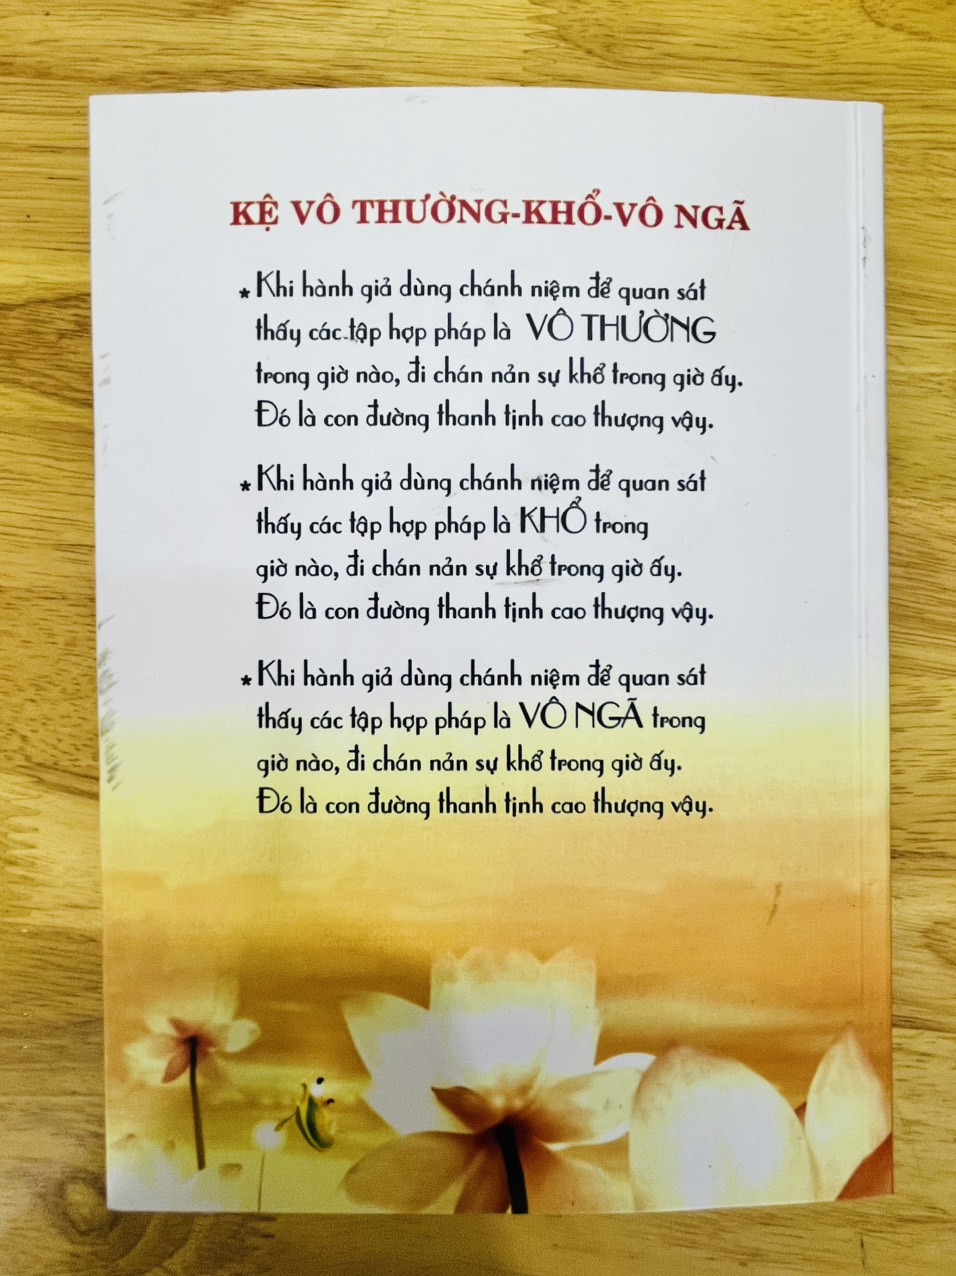 KỆ VÔ THƯỜNG-KHỔ-VÔ NGÃ
* Khi hành giả dùng chánh niệm để quan sát
thấy các tập hợp pháp là VÔ THƯỜNG
trong giờ nào, đi chán nản sự khổ trong giờ ấy.
Đó là con đường thanh tịnh cao thượng vậy.
* Khi hành giả dùng chánh niệm để quan sát
thấy các tập hợp pháp là KHỔ trong
giờ nào, đi chán nản sự khổ trong giờ ấy.
Đó là con đường thanh tịnh cao thượng vậy.
* Khi hành giả dùng chánh niệm để quan sát
thấy các tập hợp pháp là VÔ NGÃ trong
giờ nào, đi chán nản sự khổ trong giờ ấy.
Đó là con đường thanh tịnh cao thượng vậy.